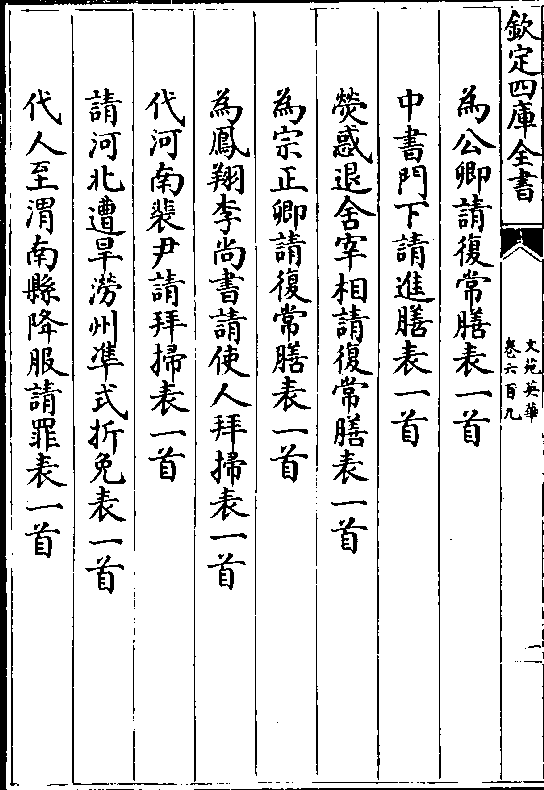 欽定四庫全書
文苑英華
卷六百九
為公卿請復常膳表一首
中書門下請進膳表一首
熒惑退舍宰相請復常膳表一首
為宗正卿請復常膳表一首
為鳳翔李尚書請使人拜掃表一首
代河南裴尹請拜掃表一首
請河北遭旱澇州準式折免表一首
代人至渭南縣降服請罪表一首